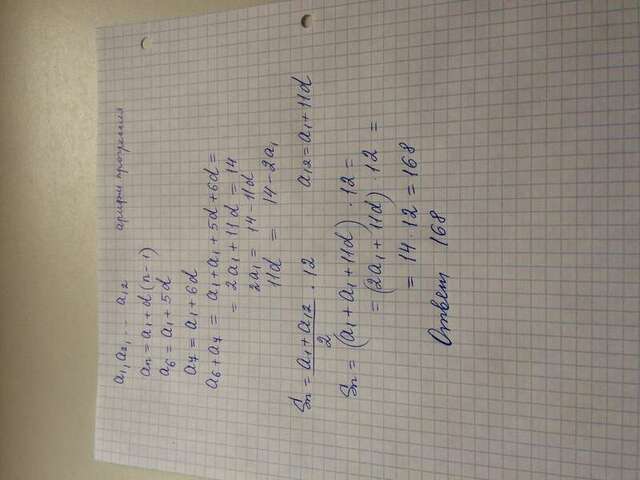 a₁, a₂, ... a₁₂ арифм прогрессия
aₙ = a₁ + d (n - 1)
a₆ = a₁ + 5d
a₇ = a₁ + 6d
a₆ + a₇ = a₁ + a₁ + 5d + 6d =
= 2a₁ + 11d = 14
2a₁ = 14 - 11d
11d = 14 - 2a₁
Sₙ = (a₁ + a₁₂)/2 · 12 a₁₂ = a₁ + 11d
Sₙ = (a₁ + a₁ + 11d) · 12 =
= (2a₁ + 11d) · 12 =
= 14 · 12 = 168
Ответ 168